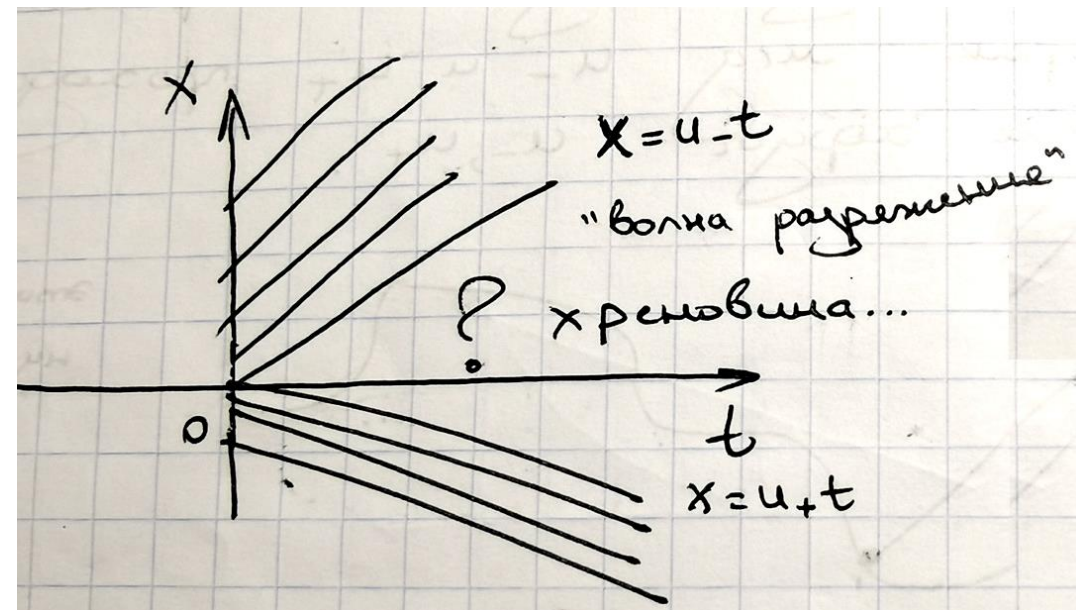 x
x = u₋t
"волна разрежения"
? хреновина...
0
t
x = u₊t